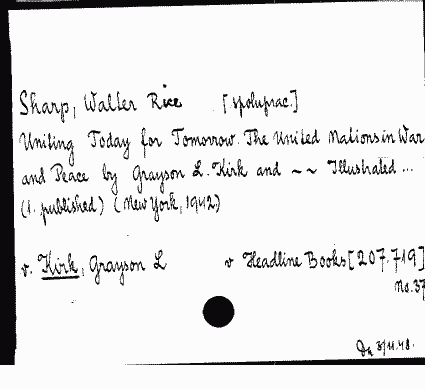 Sharp, Walter Rice [spoluprac.]
Uniting Today for Tomorrow. The United Nations in War
and Peace by Grayson L. Kirk and ~~ Illustrated ...
(1. published) (New York, 1942)
v. Kirk, Grayson L v Headline Books [207.719]
No. 37